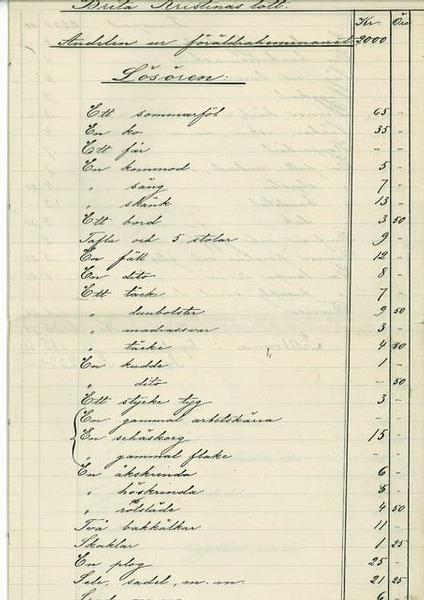 Breta Kristinas lott. Kr. Öre
Andelen ur föräldrahemmanet: 2000
Lösören:
Ett sommarföl 65 -
En ko 35 -
Ett får - -
En kommod 5 -
" säng 7 -
" skänk 13 -
Ett bord 3 50
Tafla och 5 stolar 9 -
En fäll 12 -
En dito 8 -
Ett täcke 7 -
" dunbolster 9 50
" madrassvar 3 -
" täcke 4 50
En kudde 1 -
" dito - 50
Ett stycke tyg 3 -
En gammal arbetskärra - -
En schäskorg 15 -
" gammal flake - -
En åkskrinda 6 -
" höskrinda 8 -
" rölsläde 4 50
Två bakkälkar 11 -
Skaklar 1 25
En plog 25 -
Sele, sadel, m. m. 21 25
6 -